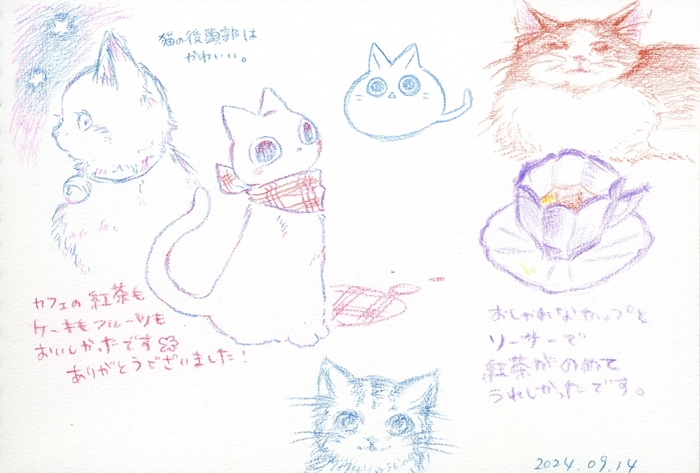 猫の後頭部は
かわいい。
カフェの紅茶も
ケーキもフルーツも
おいしかったです
ありがとうございました!
おしゃれなカップと
ソーサーで
紅茶がのめて
うれしかったです。
2024.09.14